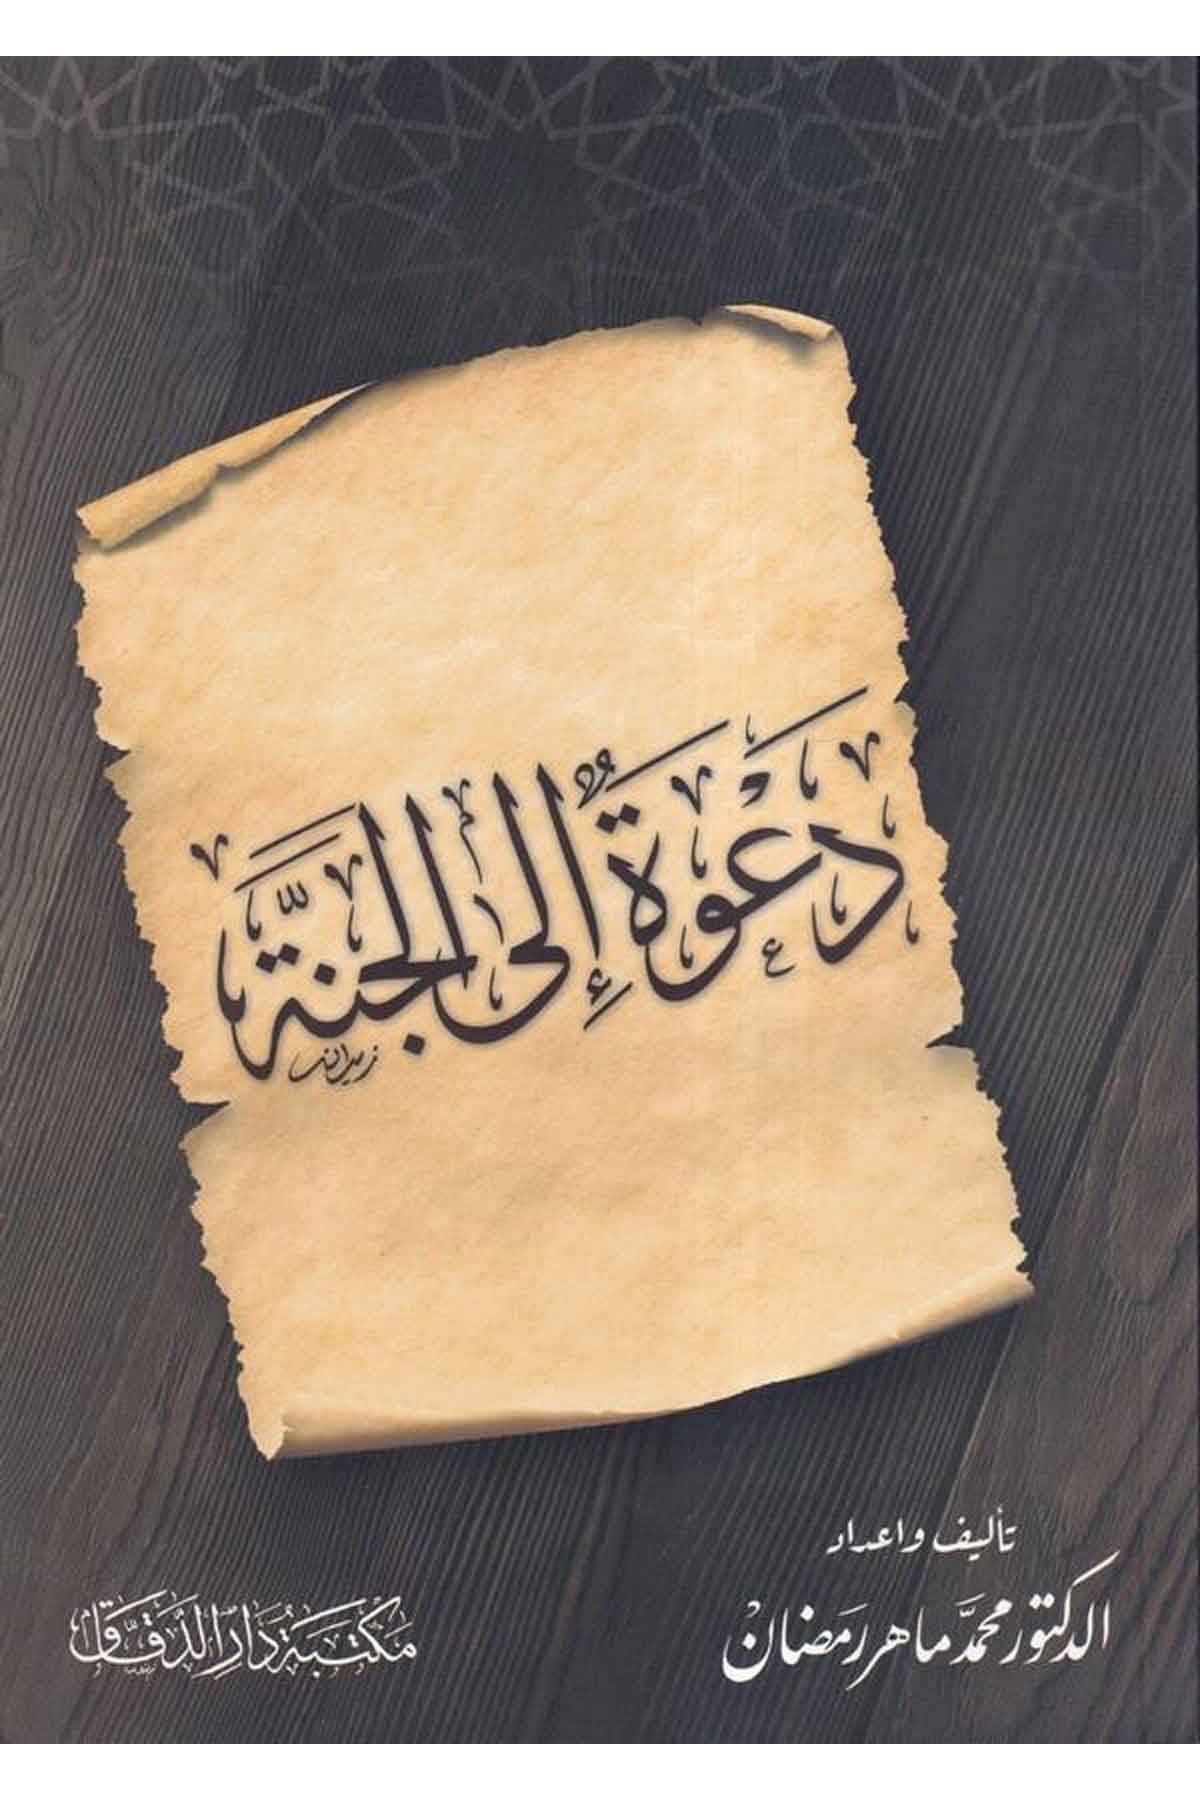 دَعْوَةٌ إِلى الجَنَّة
زيدان
تأليف وإعداد
الدكتور محمَّد ماهر رمَضانْ
مَكْتَبَةُ دَارِ الدَّقَّاق